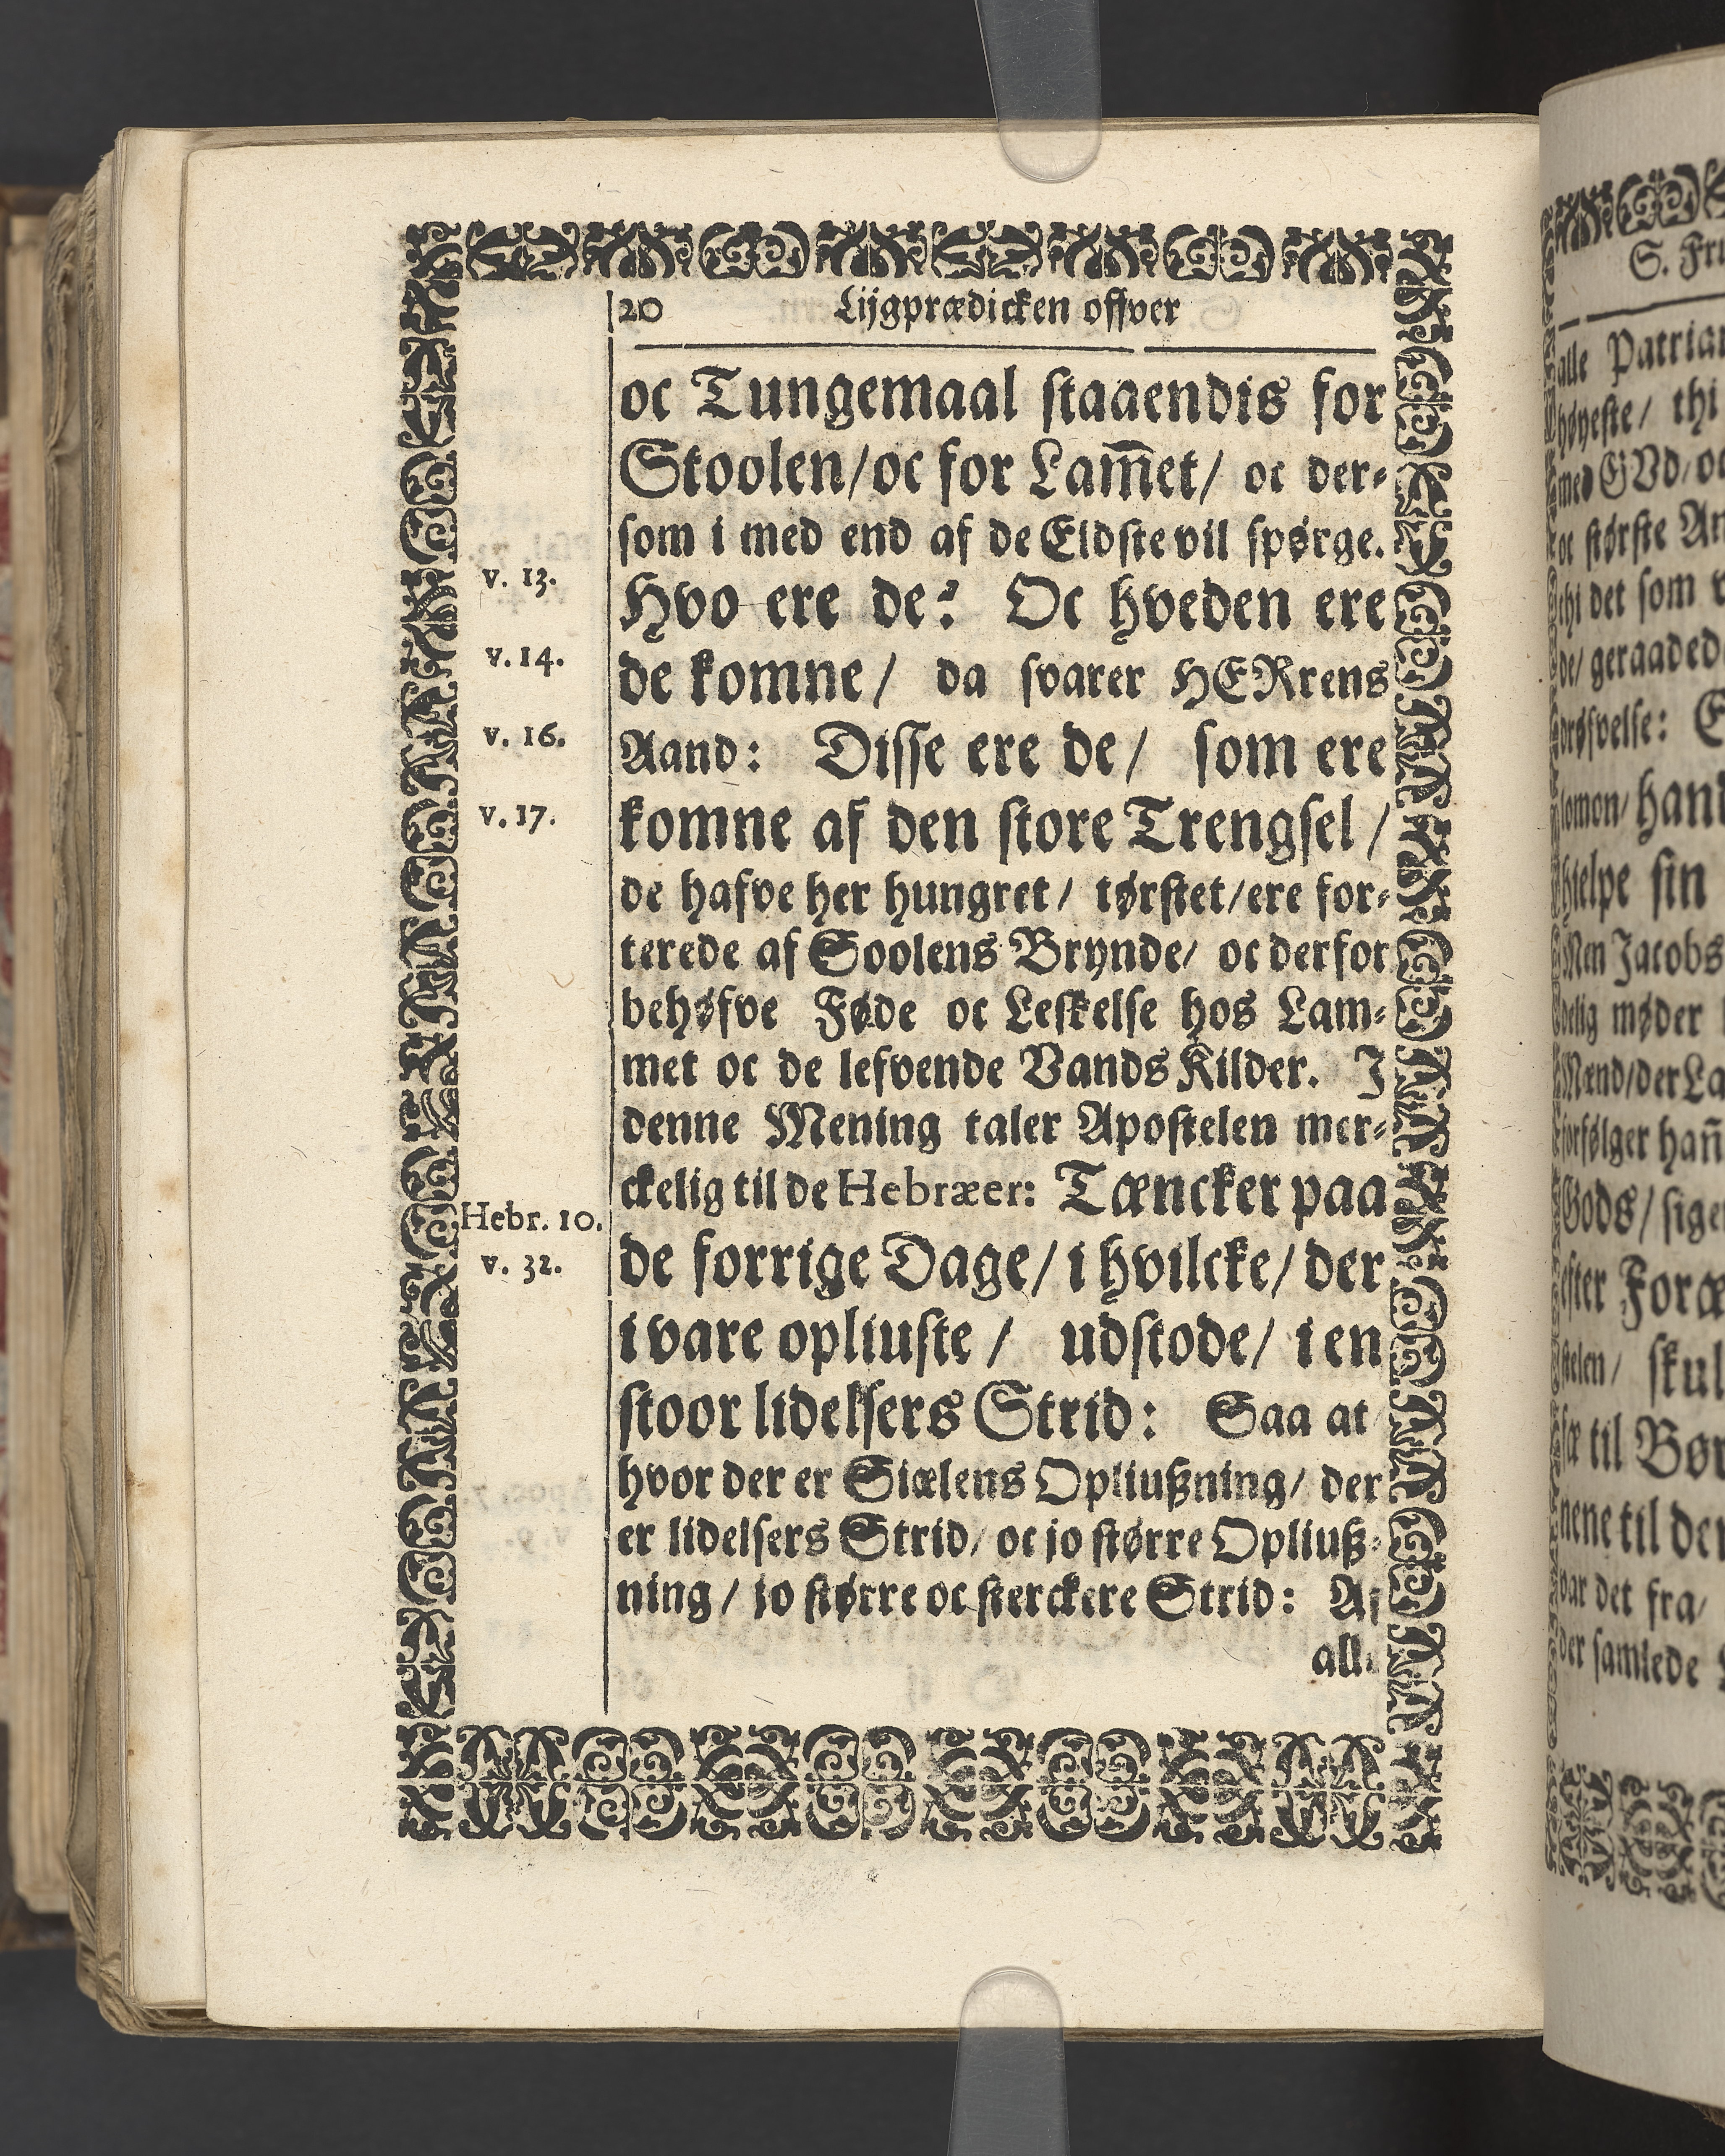 20 Lijgprædicken offver
oc Tungemaal staaendis for
Stoolen/oc for Lam̅et/ oc der⸗
som i med end af de Eldste vil spørge.
v. 13.
Hvo ere de? Oc hveden ere
v. 14.
de komne/ da svarer HERrens
v. 16.
Aand: Disse ere de/ som ere
v. 17.
komne af den store Trengsel/
de hafve her hungret/ tørstet/ere for⸗
terede af Soolens Brynde/ oc derfor
behøfve Føde oc Leskelse hos Lam⸗
met oc de lefvende Vands Kilder. I
denne Mening taler Apostelen mer⸗
ckelig til de Hebræer: Tæncker paa
Hebr. 10.
v. 32.
de forrige Dage/ i hvilcke/ der
i vare opliuste/ udstode/ i en
stoor lidelsers Strid: Saa at
hvor der er Siælens Opliußning/ der
er lidelsers Strid/ oc jo større Opliuß⸗
ning/ jo større oc sterckere Strid: Af
S. Fru
alle Patriar
høyeste/ thi
med GUd/oc
oc største An
thi det som v
de/ geraaded
drøfvelse:
hielpe sin
Men Jacobs
delig møder
Mænd/der La
forfølger han̅
Gods/ sige
efter Foræ
stelen/ skul
til Bør
nene til der
var det fra/
der samlede